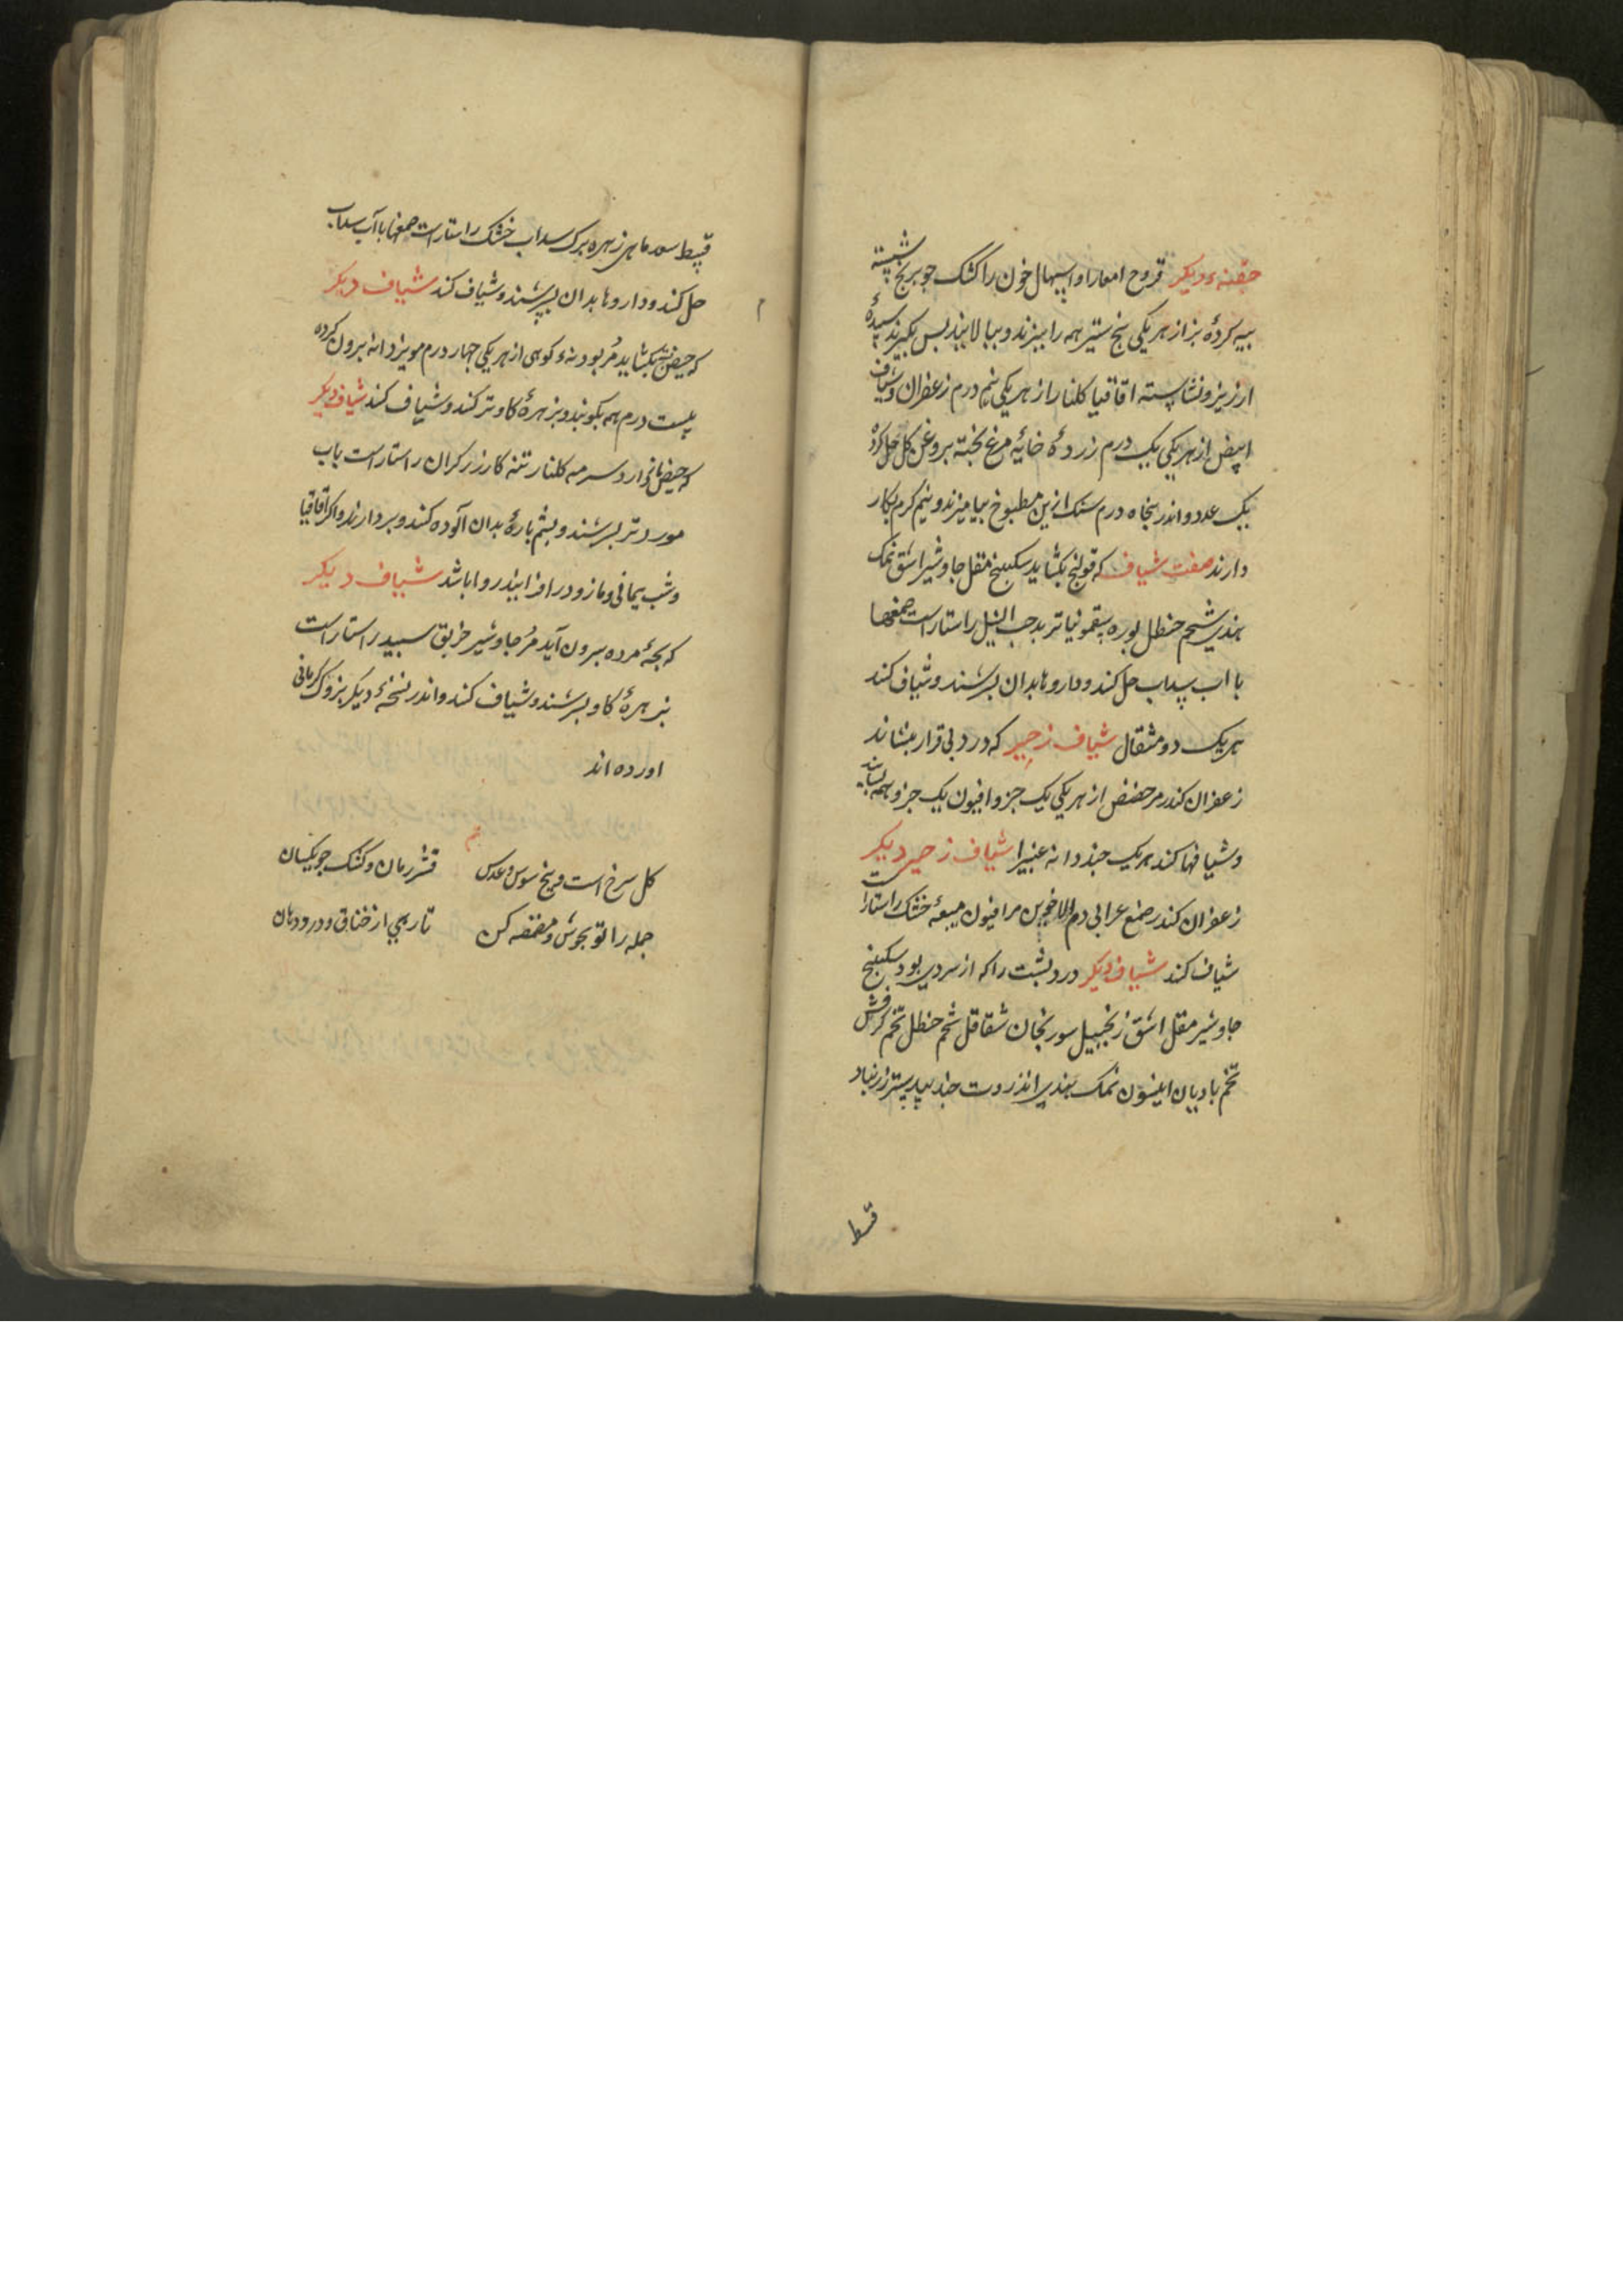 حقنهٔ دیکر قروح امعا را و اسهال خون را کشک جو برنج شسته
پیه کردهٔ بز از هر یکی پنج ستیر همه را بپزند و ببالایند پس بکیرند سپیدهٔ
ارزیز و نشاسته اقاقیا کلنار از هر یکی نیم درم زعفران و شیاف
ابیض از هر یکی یک درم زردهٔ خایهٔ مرغ پخته بروغن کل حل کرده
یک عدد و اندر پنجاه درم سنک ازین مطبوخ بیامیزند و نیم کرم بکار
دارند صفت شیاف که قولنج بکشاید سکبینج مقل جاوشیر اشق نمک
هندی شحم حنظل بوره سقمونیا تربد حب النیل راستاراست صمغها
با اب سداب حل کند و داروها بدان بسرشند و شیاف کند
هر یک دو مثقال شیاف زحیر که درد بی قرار بنشاند
زعفران کندر مر حضض از هر یکی یک جزو افیون یک جزو همه بسایند
و شیافها کند هر یک چند دانه غبیرا شیاف زحیر دیکر
زعفران کندر صمغ عرابی دم الاخوین مر افیون میعهٔ خشک راستاراست
شیاف کند شیاف دیکر درد پشت را که از سردی بود سکبینج
جاوشیر مقل اشق زنجبیل سورنجان شقاقل شحم حنظل تخم کرفس
تخم بادیان انیسون نمک هندی انزروت جند بیدستر زرنباد
قسط
قسط ماهی زهره برک سداب خشک راستاراست صمغها با آب سداب
حل کند و داروها بدان بسرشند و شیاف کند شیاف دیکر
که حیض بکشاید مر بودنهٔ کوهی از هر یکی چهار درم مویز دانه بیرون کرده
بیست درم همه بکوبند و بزهرهٔ کاو تر کند و شیاف کند شیاف دیکر
که حیض باز دارد سرمه کلنار تنه کار زرکران راستاراست باب
مورد تر بسرشند و پشم پارهٔ بدان آلوده کنند و بردارند و اکر اقاقیا
و شب یمانی و مازو در افزایند روا باشد شیاف دیکر
که بچهٔ مرده بیرون آید مر جاوشیر خربق سپید راستاراست
بزهرهٔ کاو بسرشند و شیاف کند و اندر نسخهٔ دیکر بزوک کرمانی
اورده اند
کل سرخ است و بیخ سوس و عدس قشر رمان و کشک جو یکسان
جمله را تو بجوش و مضمضه کن تا رهی از خناق و درد دهان